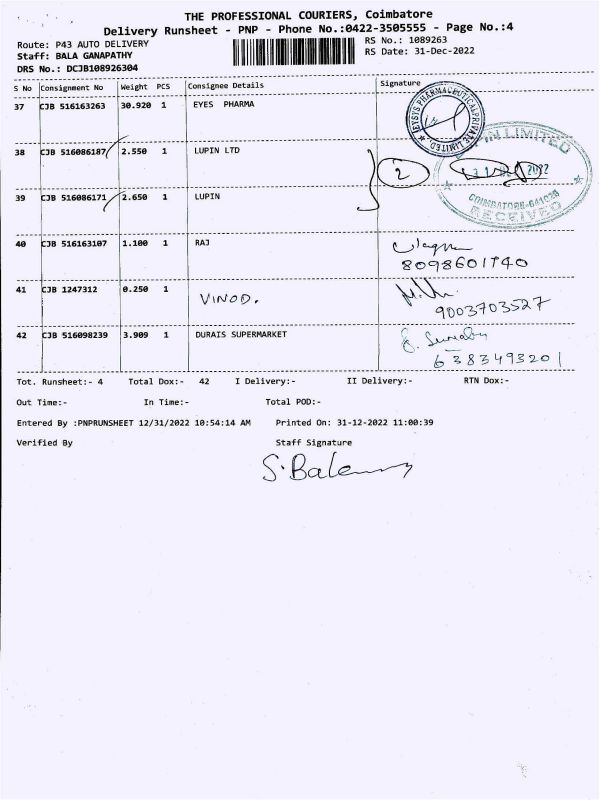 THE PROFESSIONAL COURIERS, Coimbatore
Delivery Runsheet - PNP - Phone No.:0422-3505555 - Page No.:4
Route: P43 AUTO DELIVERY
RS No.: 1089263
Staff: BALA GANAPATHY
RS Date: 31-Dec-2022
DRS No.: DCJB108926304
S No Consignment No Weight PCS Consignee Details Signature
37 CJB 516163263 30.920 1 EYES PHARMA
38 CJB 516086187 2.550 1 LUPIN LTD
39 CJB 516086171 2.650 1 LUPIN
2
LIMITED
2022
COIMBATORE-641026
RECEIVED
40 CJB 516163107 1.100 1 RAJ
8098601740
41 CJB 1247312 0.250 1 VINOD.
9003703527
42 CJB 516098239 3.909 1 DURAIS SUPERMARKET
6383493201
Tot. Runsheet:- 4 Total Dox:- 42 I Delivery:- II Delivery:- RTN Dox:-
Out Time:- In Time:- Total POD:-
Entered By :PNPRUNSHEET 12/31/2022 10:54:14 AM Printed On: 31-12-2022 11:00:39
Verified By Staff Signature